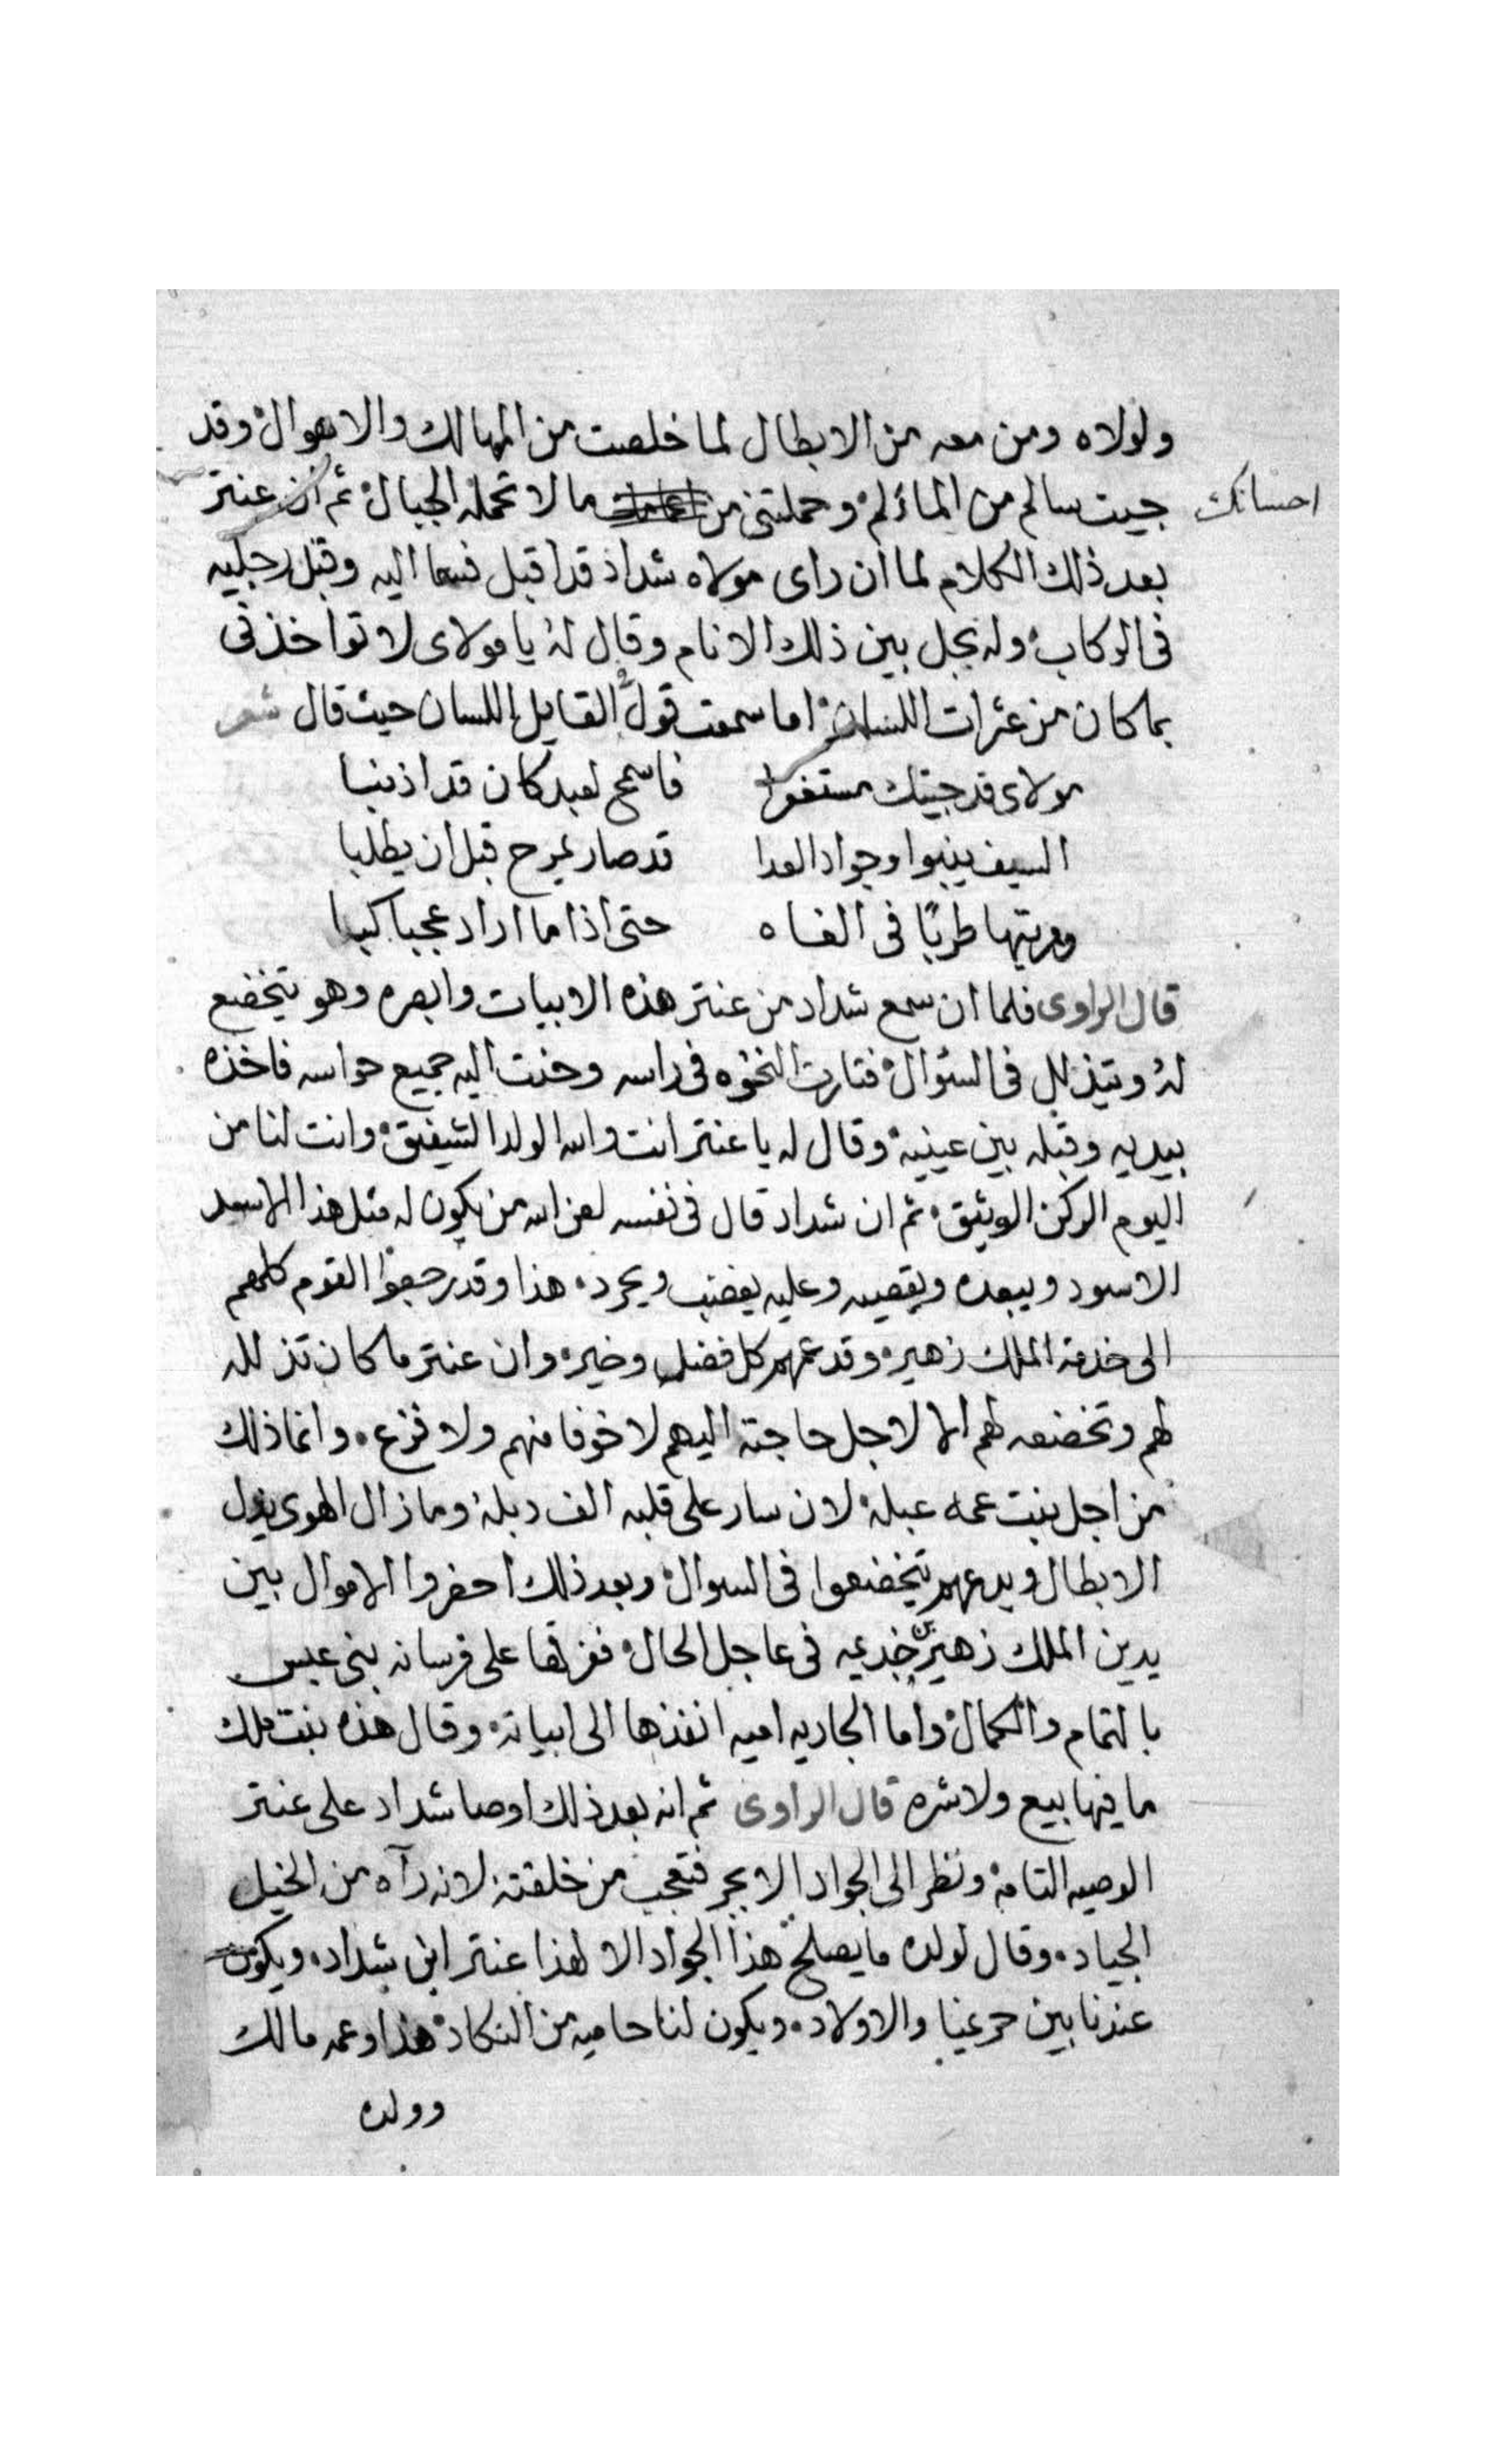 ولولاه ومن معه من الابطال لما خلصت من المهالك والاهوال وقد
احسانك
جيت سالم من المأثم وحملتنى من ما لا تحمله الجبال ثم ان عنتر
بعد ذلك الكلام لما ان راى مولاه شداد قد اقبل فسعا اليه وقبل رجليه
فى الركاب وله بجل بين ذلك الانام وقال له يا مولاى لا تواخذنى
بما كان من عثرات اللسان اما سمعت قول القايل اللسان حيث قال شعر
مولاى قد جيتك مستغفرا فاسمح لعبد كان قد اذنبا
السيف ينبوا وجواد العدا قد صار يمرح قبل ان يطلبا
طربًا فى الفاه حتى اذا ما اراد عجبا كبا
قال الراوى فلما ان سمع شداد من عنتر هذه الابيات وابصره وهو يتخضع
له ويتذلل فى السؤال فتارت النخوه فى راسه وحنت اليه جميع حواسه فاخذه
بيديه وقبله بين عينيه وقال له يا عنتر انت والله الولد الشفيق وانت لنا من
اليوم الركن الوثيق ثم ان شداد قال فى نفسه لعن الله من يكون له مثل هذا الاسد
الاسود ويبعده ويقصيه وعليه يغضب ويحرد هذا وقد رجعوا القوم كلهم
الى خدمة الملك زهير وقد عمهم كل فضل وخير وان عنتر ما كان تذلله
لهم وتخضعه لهم الا لاجل حاجته اليهم لا خوفا منهم ولا فزع وانما ذلك
من اجل بنت عمه عبلة لان سار على قلبه الف دبلة وما زال الهوى يذل
الابطال ويدعهم يتخضعوا فى السوال وبعد ذلك احضروا الاموال بين
يدين الملك زهير بن جذيمه فى عاجل الحال ففرقها على فرسانه بنى عبس
بالتمام والكمال واما الجاريه اميه انفذها الى ابياته وقال هذه بنت ملك
ما فيها بيع ولا شره قال الراوى ثم انه بعد ذلك اوصا شداد على عنتر
الوصيه التامة ونظر الى الجواد الابجر فتعجب من خلقته لانه رآه من الخيل
الجياد وقال لولده ما يصلح هذا الجواد الا لهذا عنتر ابن شداد ويكون
عندنا بين حرعنا والاولاد ويكون لنا حاميه من النكاد هذا وعمه مالك
وولده